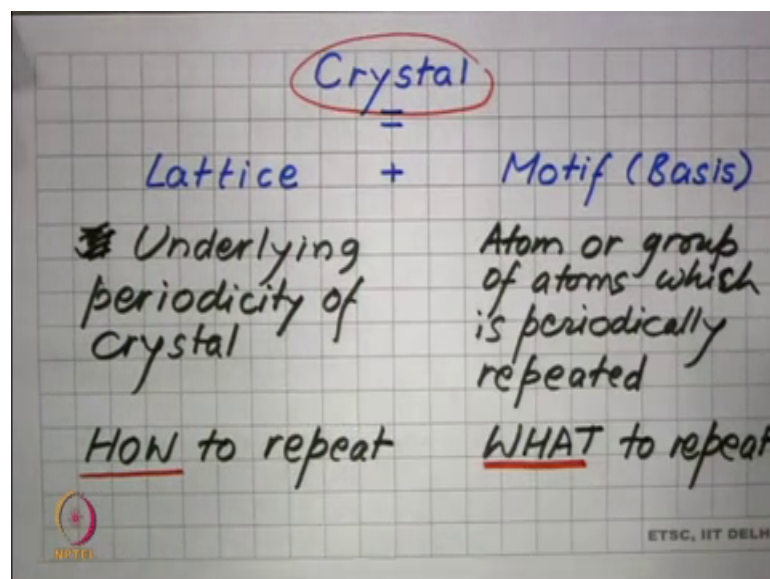 Crystal
=
Lattice + Motif (Basis)
Underlying
periodicity of
crystal
HOW to repeat
Atom or group
of atoms which
is periodically
repeated
WHAT to repeat
NPTEL
ETSC, IIT DELH